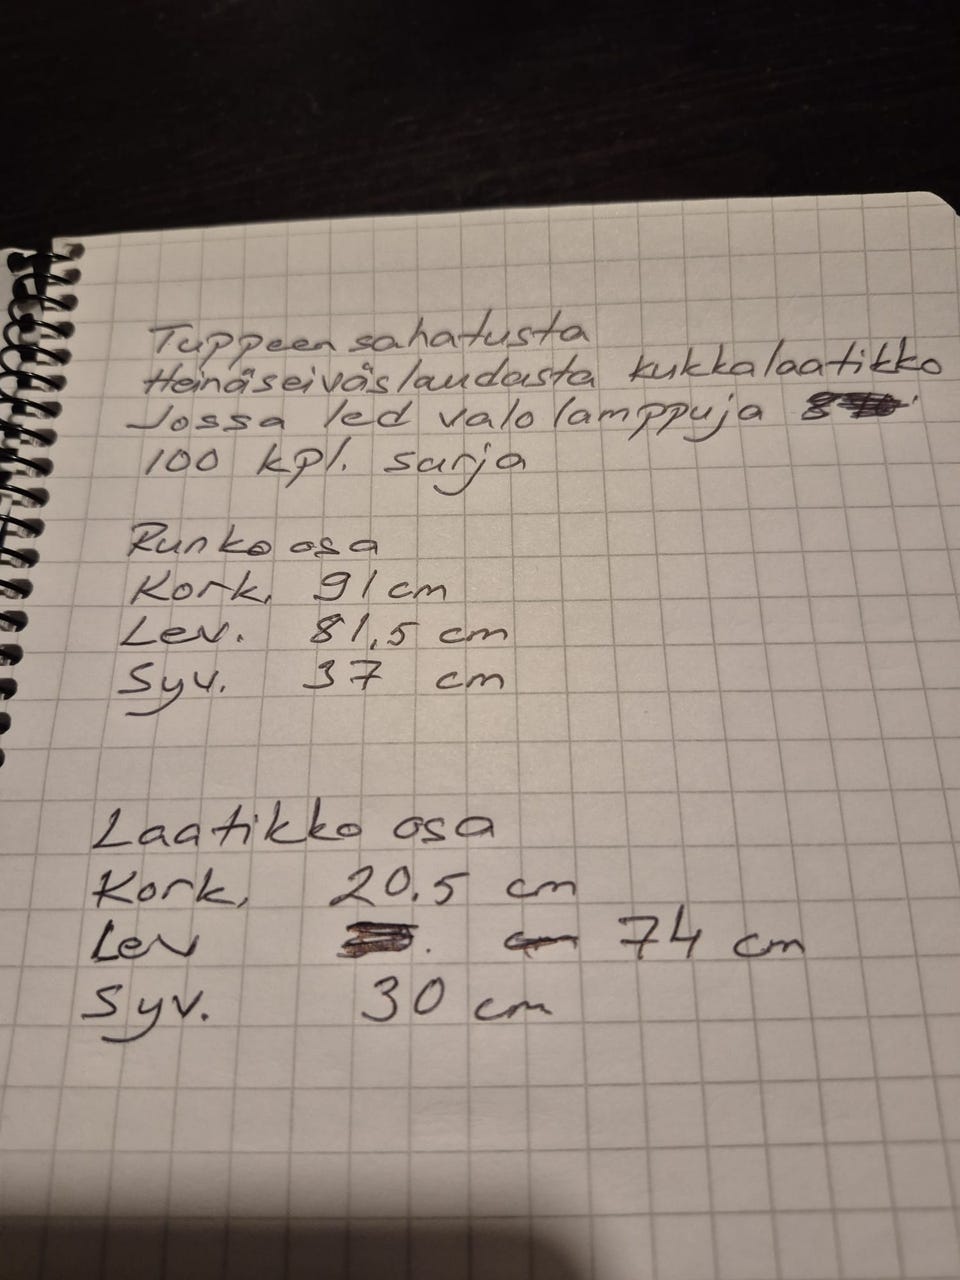 Tuppeen sahatusta
Heinäseiväslaudasta kukkalaatikko
Jossa led valo lamppuja 8
100 kpl. sarja
Runko osa
Kork. 91 cm
Lev. 81,5 cm
Syv. 37 cm
Laatikko osa
Kork, 20.5 cm
Lev cm 74 cm
Syv. 30 cm